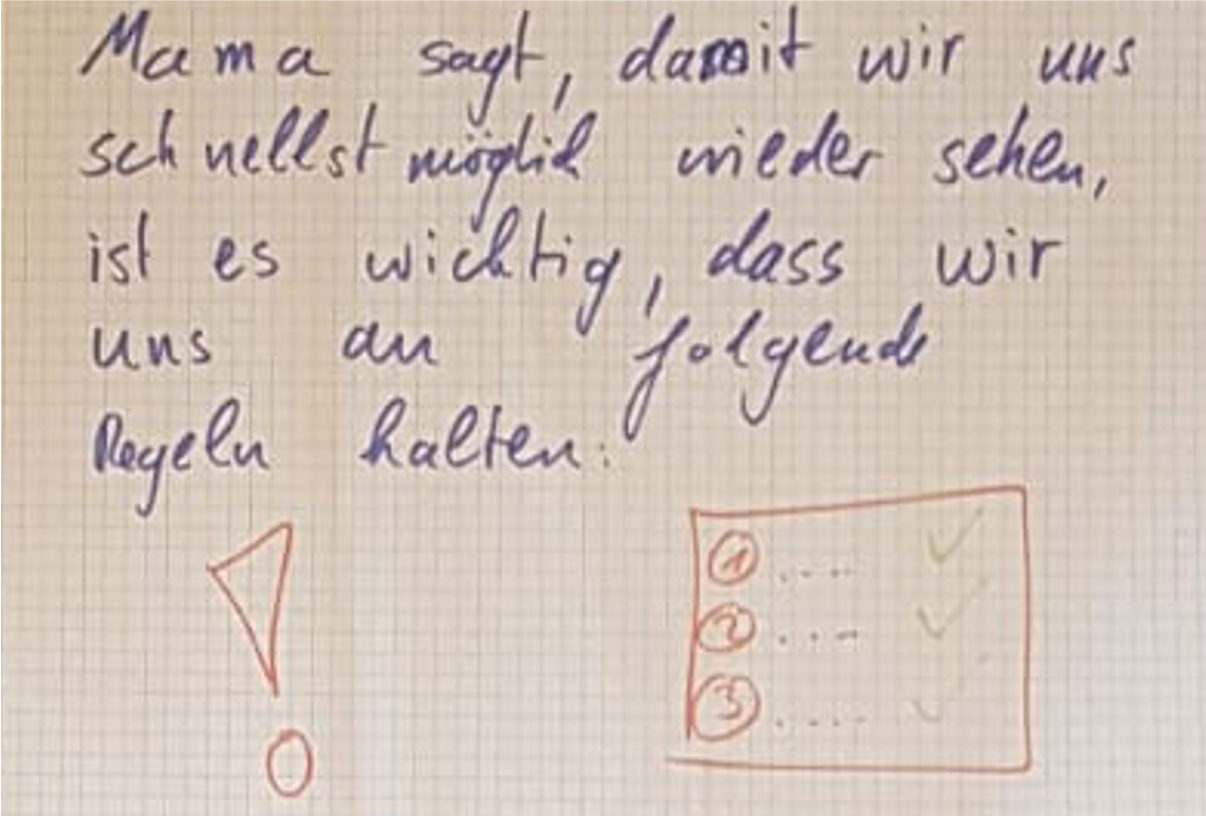 Mama sagt, damit wir uns
schnellstmöglich wieder sehen,
ist es wichtig, dass wir
uns an folgende
Regeln halten:
!
1 .... ✓
2 .... ✓
3 .... ✓